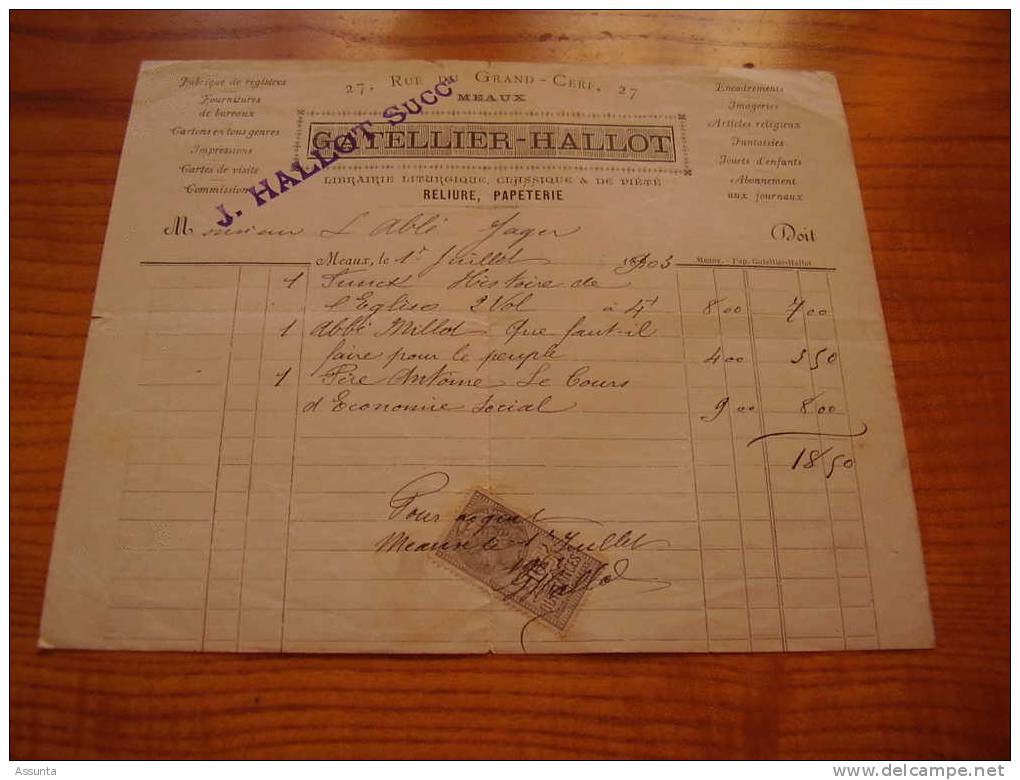 27, RUE DU GRAND-CERF, 27
MEAUX
GATELLIER-HALLOT
LIBRAIRIE LITURGIQUE, CLASSIQUE & DE PIÉTÉ
RELIURE, PAPETERIE
J. HALLOT SUCCr
Fabrique de registres
Fournitures
de bureaux
Cartons en tous genres
Impressions
Cartes de visite
Commission
Encadrements
Imageries
Articles religieux
Fantaisies
Jouets d'enfants
Abonnement
aux journaux
Monsieur L'Abbé Jager Doit
Meaux, le 1r Juillet 1903
Meaux. - Pap. Gatellier-Hallot
1 Funck Histoire de
l'Eglise 2 Vol à 4f 8 00 7 00
1 Abbé Millot Que faut-il
faire pour le peuple 4 00 3 50
1 Père Antoine Le Cours
d'Economie Social 9 00 8 00
18 50
Pour acquit
Meaux le 1r Juillet
J Hallot
Assunta
www.delcampe.net